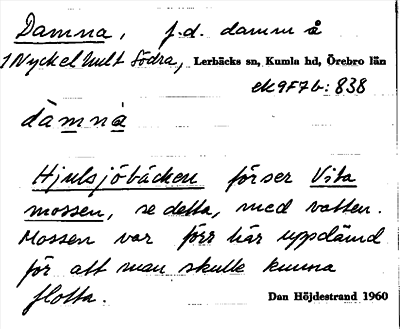 Damna, f.d. damm å
1 Nyckelhult Södra, Lerbäcks sn, Kumla hd, Örebro län
ek 9F7b: 838
dàmna
Hjulsjöbäcken förser Vita
mossen, se detta, med vatten.
Mossen var förr här uppdämd
för att man skulle kunna
flotta. Dan Höjdestrand 1960